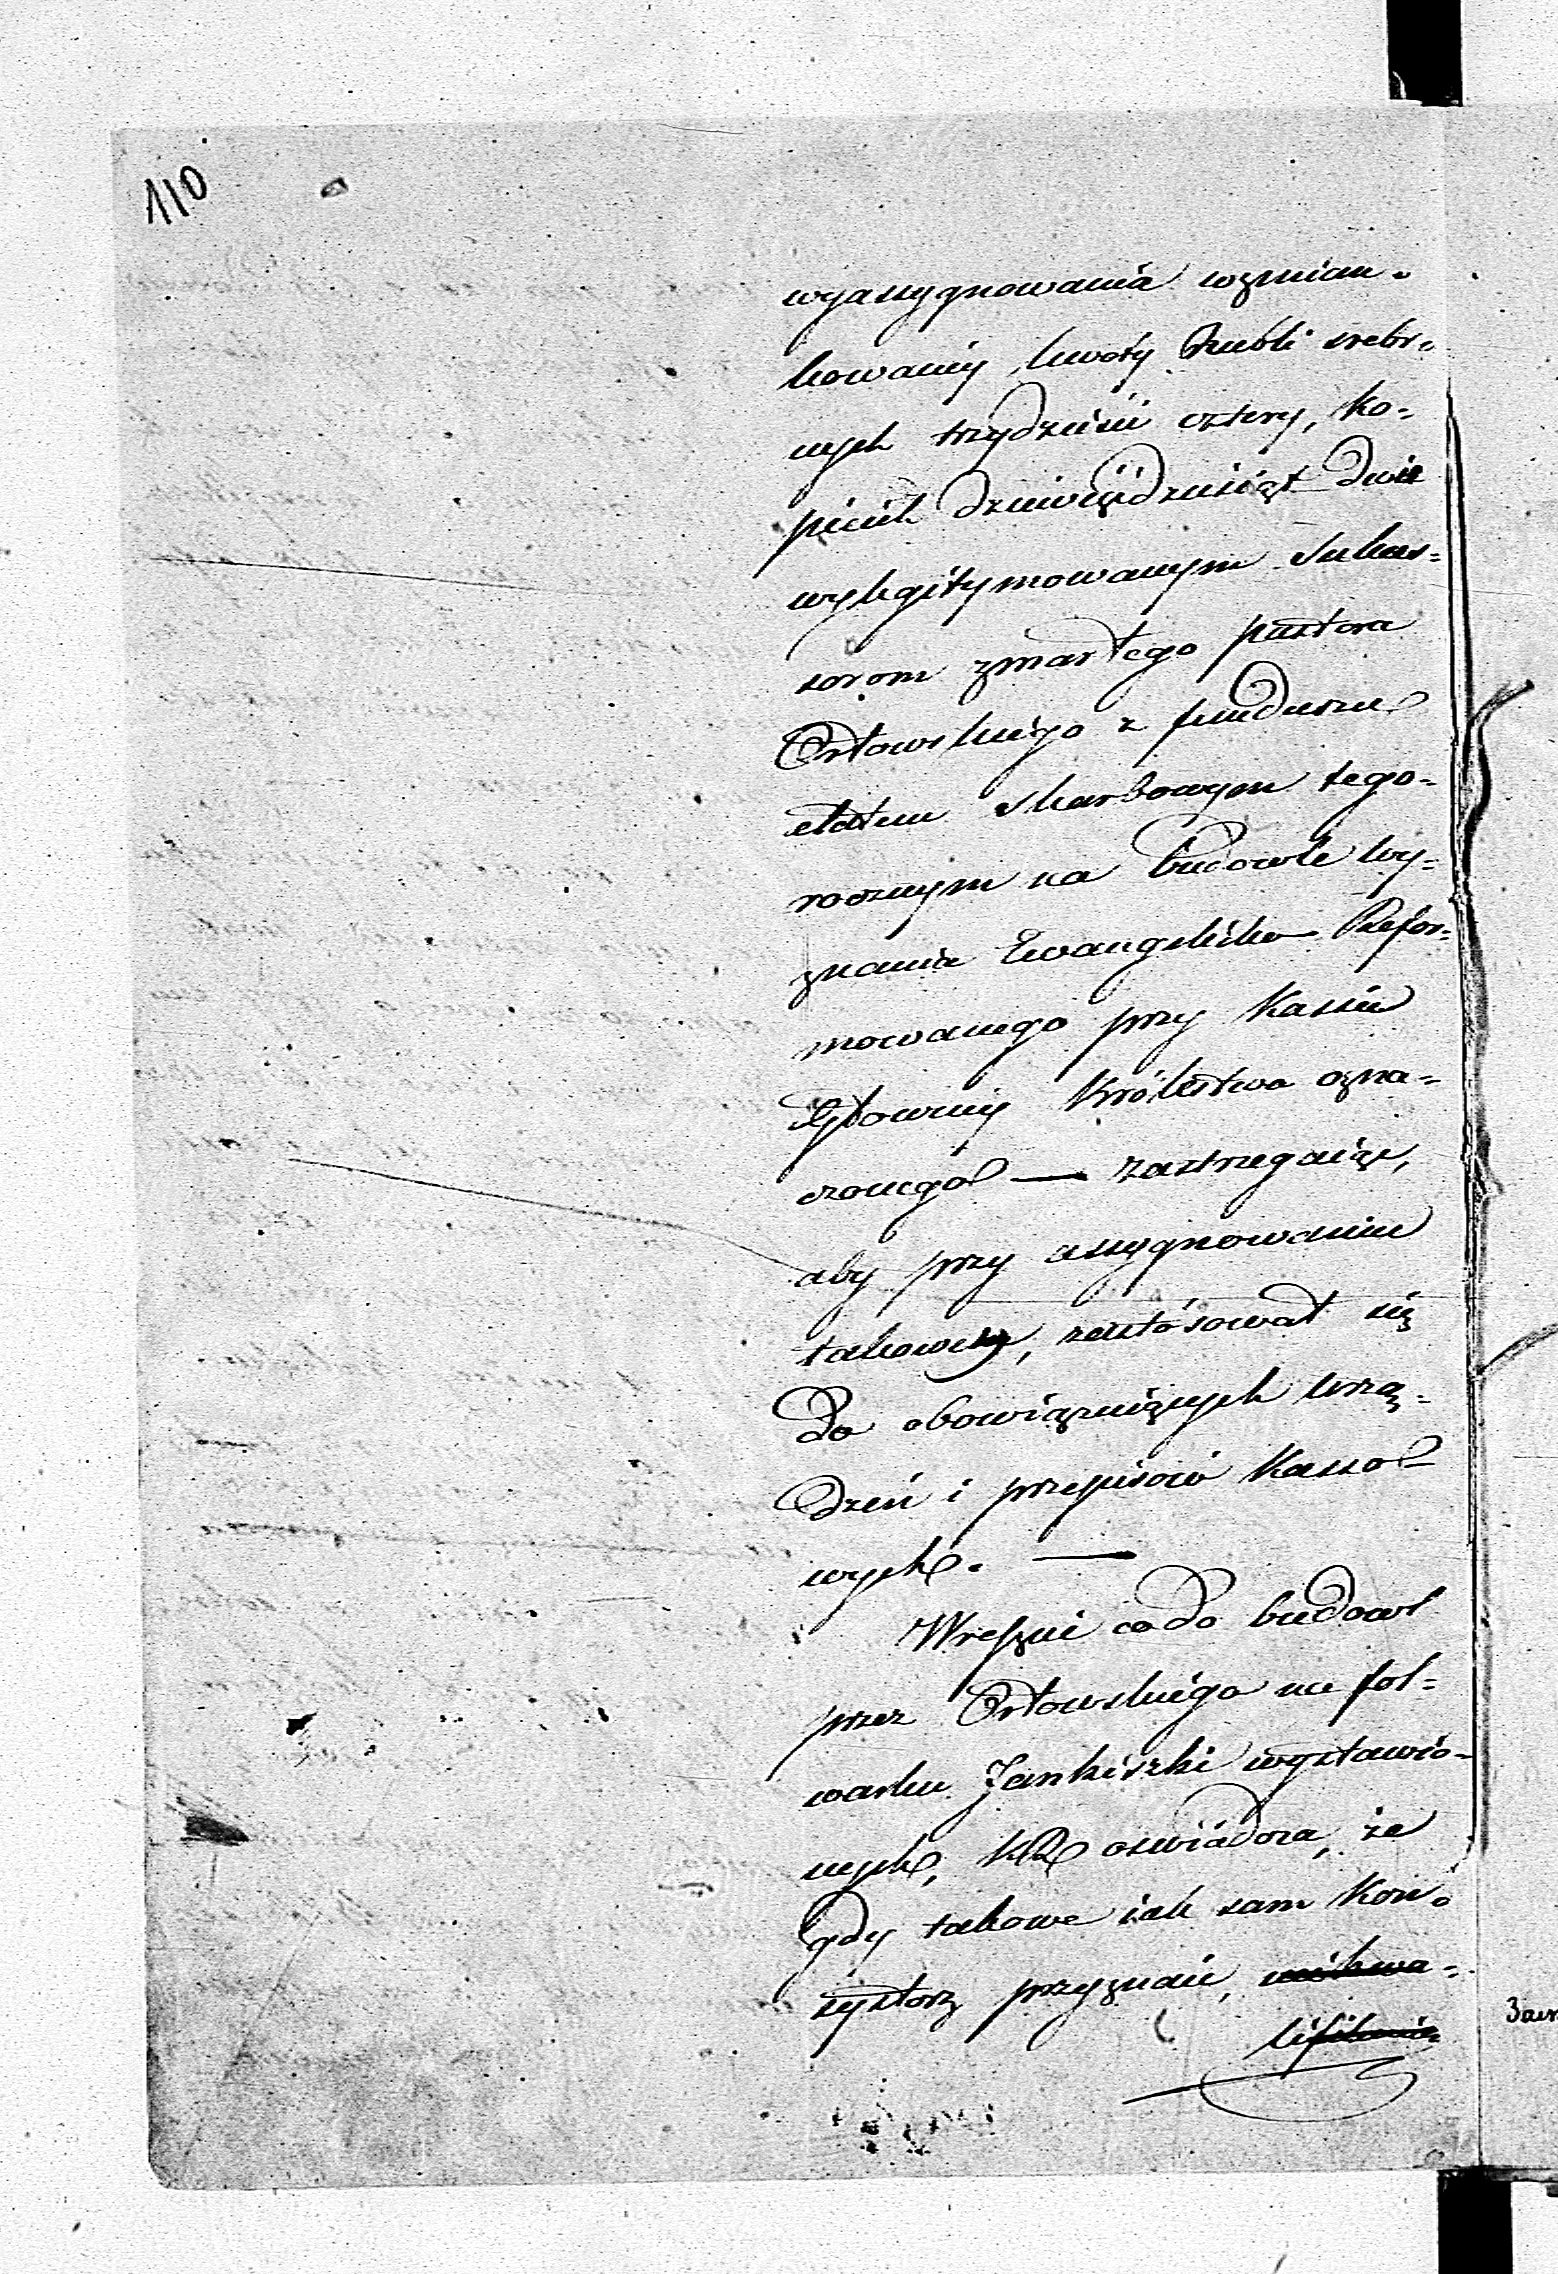 110
wyassygnowania wzmian-
kowanéy kwoty Rubli srebr-
nych trzydzieści cztery, ko-
pieiek dziewięćdziesiąt dwie
wylegitymowanym Sukces-
sorom zmarłego pastora
Orłowskiego z funduszu
etatem skarbowym tego-
rocznym na budowle wy-
znania Ewangelicko Refor-
mowanego przy Kassie
Głównéy Królestwa ozna-
czonego — zastrzegaiąc,
aby przy assygnowaniu
takowéy, zastósował się
do obowiązuiących urzą-
dzeń i przepisów Kasso-
wych. —
Wreszcie co do budowl
przez Orłowskiego na fol-
warku Jankiszki wystawio-
nych, KR oswiadcza, że
gdy takowe iak sam Kon-
systorz przyznaie, niekwa-
lifikuie